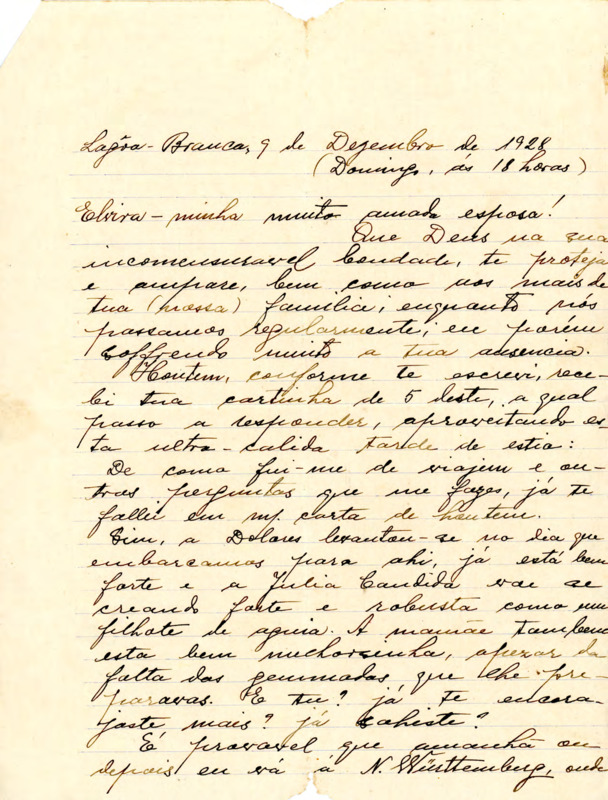 Lagôa-Branca, 9 de Dezembro de 1928
(Domingo, ás 18 horas)
Elvira - minha muito amada esposa!
Que Deus na sua
incomensuravel bondade, te proteja
e ampare, bem como aos mais de
tua (nossa) familia; enquanto nós
passamos regularmente; eu porém
soffrendo muito a tua ausencia.
Hontem, conforme te escrevi, rece-
bi tua cartinha de 5 deste, a qual
passo a responder, aproveitando es-
ta ultra-calida tarde de estio:
De como fui-me de viajem e ou-
tras perguntas que me fazes, já te
fallei em mp. carta de hontem.
Sim, a Dolores levantou-se no dia que
embarcamos para ahi, já está bem
forte e a Julia Candida vae se
creando forte e robusta como um
filhote de aguia. A mamãe tambem
esta bem melhorsinha, apezar da
falta das gemmadas que lhe pre-
paravas. E tu? já te encora-
jaste mais? já sahiste?
É provavel que amanhã ou
depois eu vá á N. Württemberg, onde